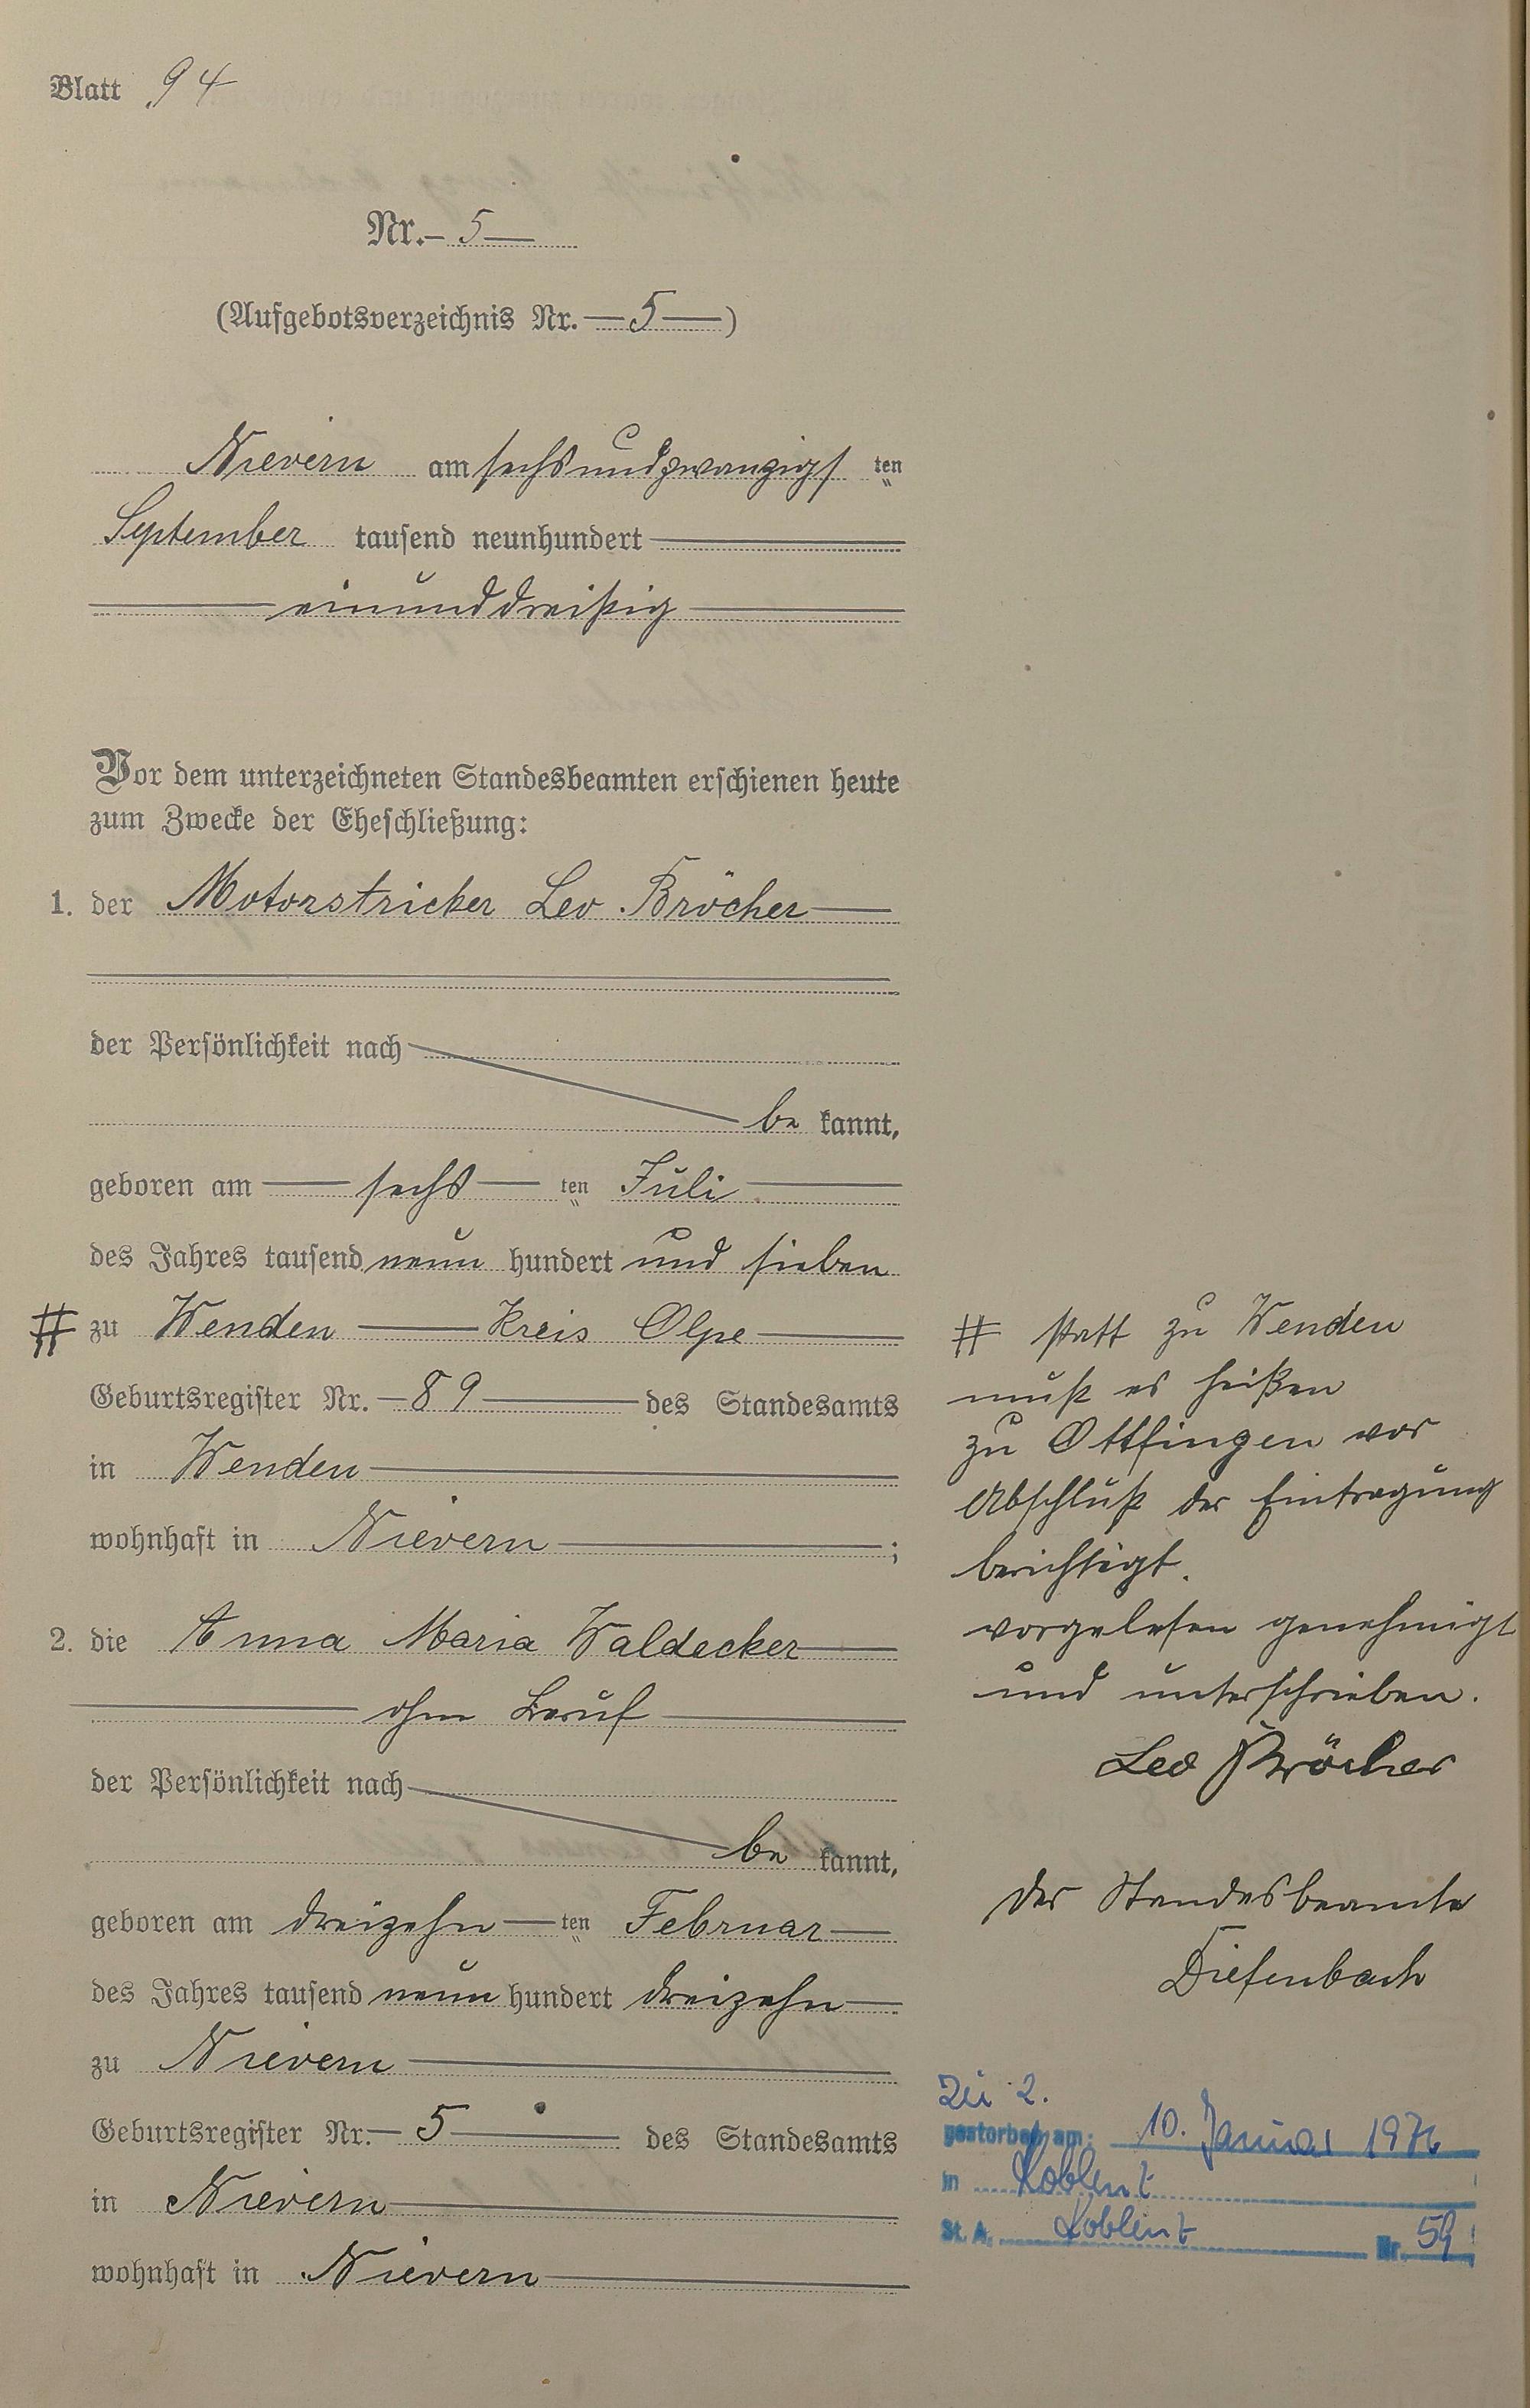 Blatt 94
Nr. 5
(Aufgebotsverzeichnis Nr. 5)
Nievern am sechsundzwanzigsten
September tausend neunhundert
einunddreißig
Vor dem unterzeichneten Standesbeamten erschienen heute
zum Zwecke der Eheschließung:
1. der Motorstricker Leo Bröcher
der Persönlichkeit nach
be kannt,
geboren am sechs ten Juli
des Jahres tausend neun hundert und sieben
# zu Wenden Kreis Olpe
Geburtsregister Nr. 89 des Standesamts
in Wenden
wohnhaft in Nievern ;
2. die Anna Maria Waldecker
ohne Beruf
der Persönlichkeit nach
be kannt,
geboren am dreizehn ten Februar
des Jahres tausend neun hundert dreizehn
zu Nievern
Geburtsregister Nr. 5 des Standesamts
in Nievern
wohnhaft in Nievern
# statt zu Wenden
muß es heißen
zu Ottfingen vor
Abschluß der Eintragung
berichtigt.
vorgelesen genehmigt
und unterschrieben.
Leo Bröcher
Der Standesbeamte
Diefenbach
Zu 2.
gestorben am: 10. Januar 1976
in Koblenz
St. A. Koblenz Nr. 59